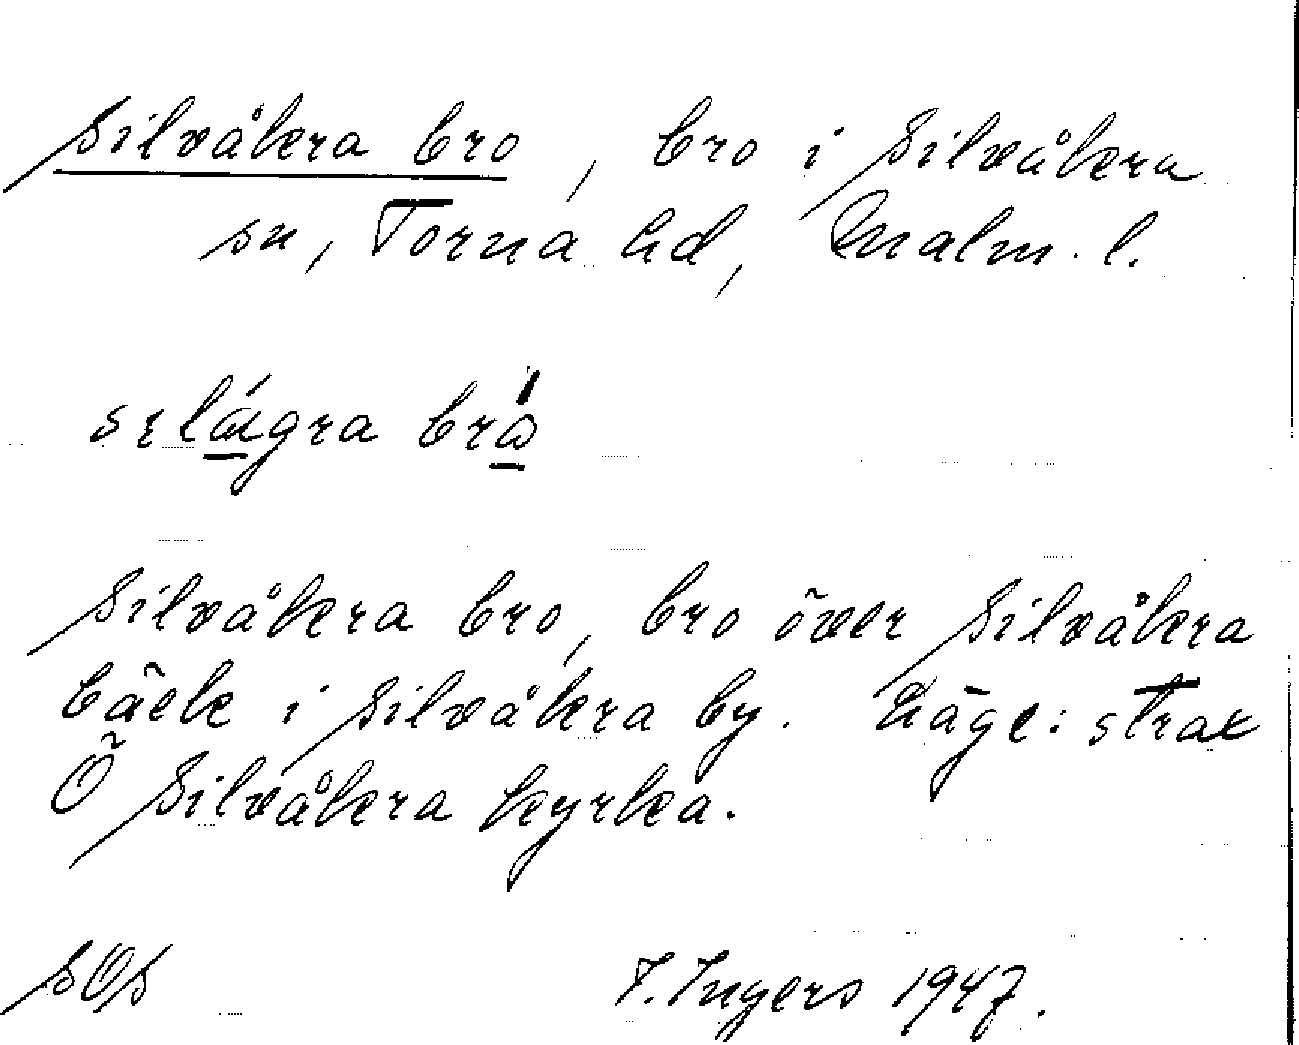 Silvåkra bro, bro i Silvåkra
sn, Torna hd, Malm. l.
Silvåkra bro, bro över Silvåkra
bäck i Silvåkra by. Läge: strax
Ö Silvåkra kyrka.
SOS I. Ingers 1947.